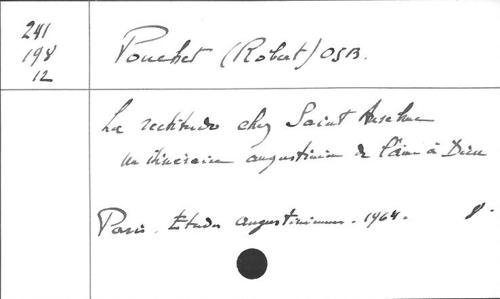 241
198
12
Pouchet (Robert) OSB.
La rectitudo chez Saint Anselme
un itinéraire augustinien de l'âme à Dieu
Paris. Etudes augustiniennes. 1964. 8°.